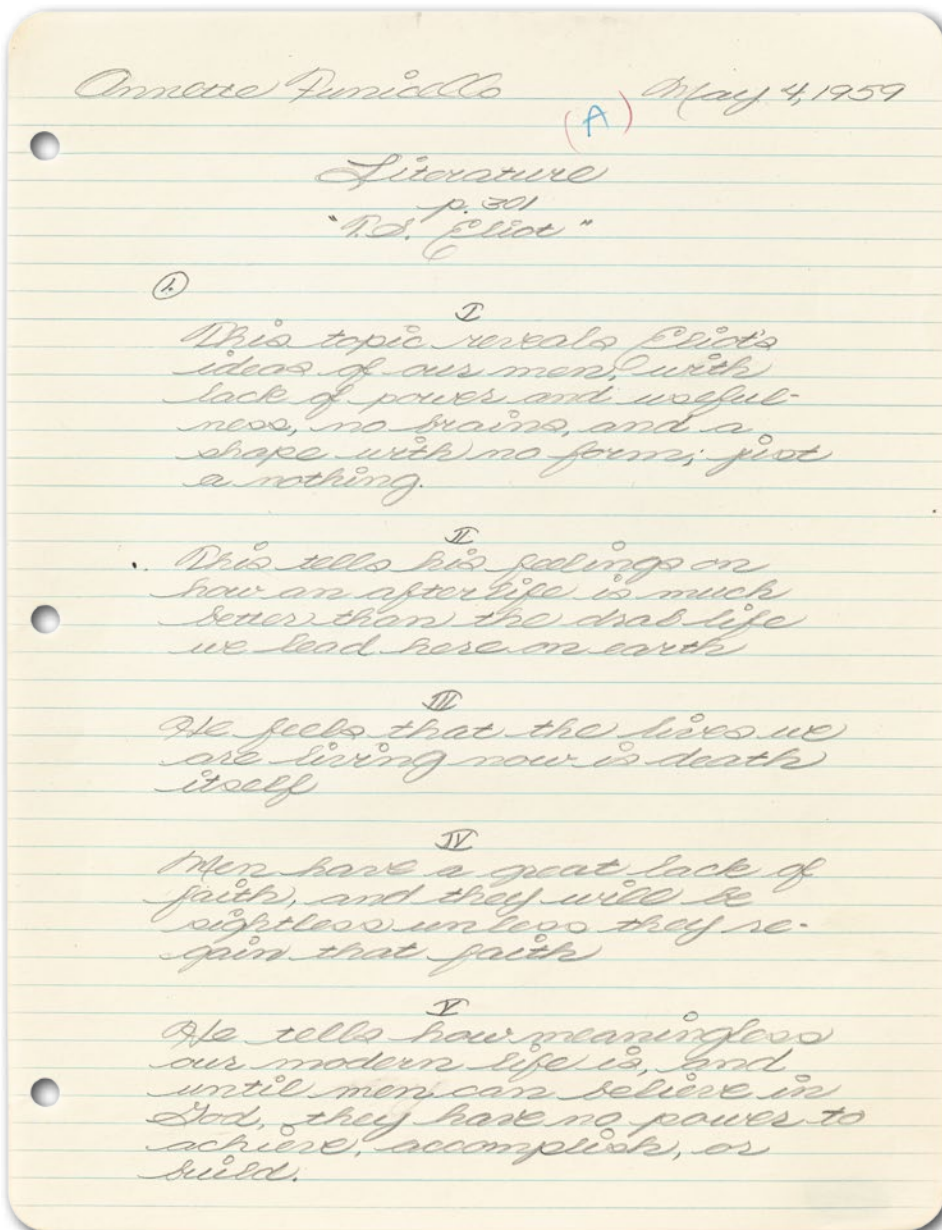 Annette Funicello May 4, 1959
(A)
Literature
p. 301
"T.S. Eliot"
1.
I
This topic reveals Eliot's
ideas of our men, with
lack of power and useful-
ness, no brains, and a
shape with no form; just
a nothing.
II
This tells his feelings on
how an afterlife is much
better than the drab life
we lead here on earth
III
He feels that the lives we
are living now is death
itself
IV
Men have a great lack of
faith, and they will be
sightless unless they re-
gain that faith
V
He tells how meaningless
our modern life is, and
until men can believe in
God, they have no power to
achieve, accomplish, or
build.